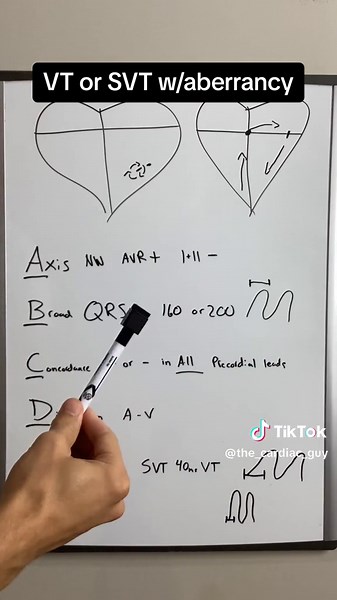 VT or SVT w/aberrancy
Axis NW AVR+ I+II -
Broad QRS 160 or 200
Concordance or - in All Precordial leads
A-V
SVT VT
TikTok
@the_cardiac_guy